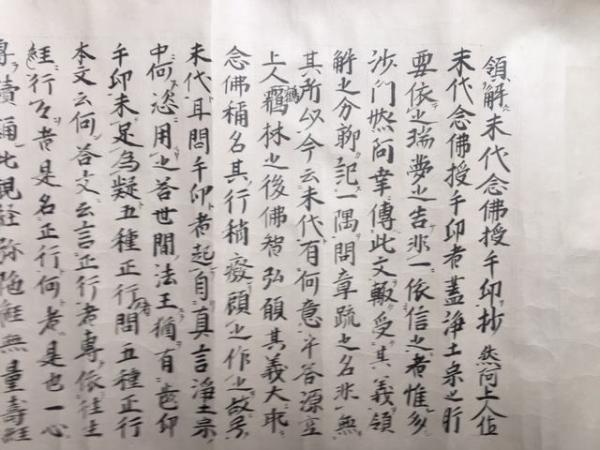 領解末代念佛授手印抄 然阿上人作
末代念佛授手印者蓋浄土宗之肝
要依之瑞夢之告非一依信之者惟多
沙門然阿幸傳此文輙受其義領
解之分聊記一隅問章疏之名非無
其所以今云末代有何意乎答源空
上人鶴林之後佛智弘願其義大乖
念佛稱名其行稍癈顧之作之故云
末代耳問手印者起自真言浄土宗
中何恣用之答世間法王猶有齒印
手印未足為疑五種正行問五種正行
本文云何答文云言正行者專依往生
經行行者是名正行何者是也一心
專讀誦此觀經弥陀經無量壽經